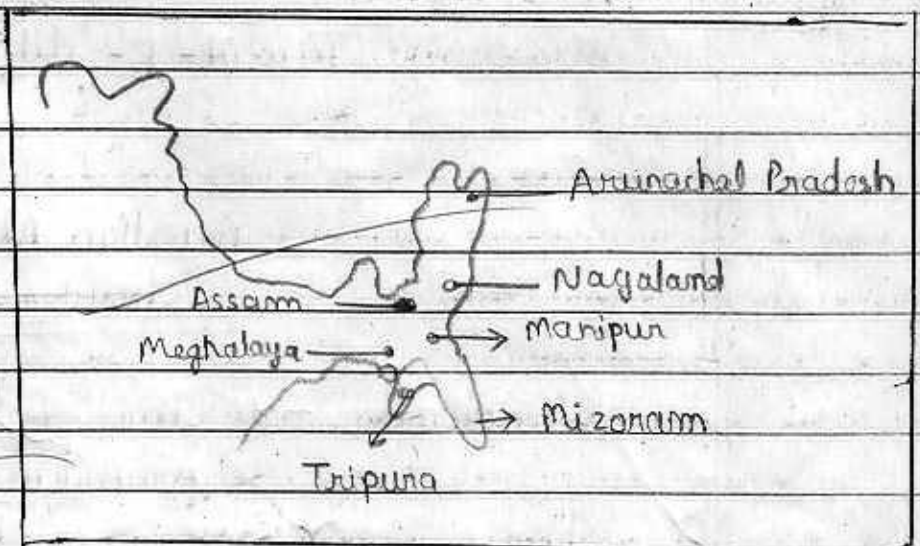 Aruinachal Pradesh
Nagaland
Assam
Manipur
Meghalaya
Mizoram
Tripura